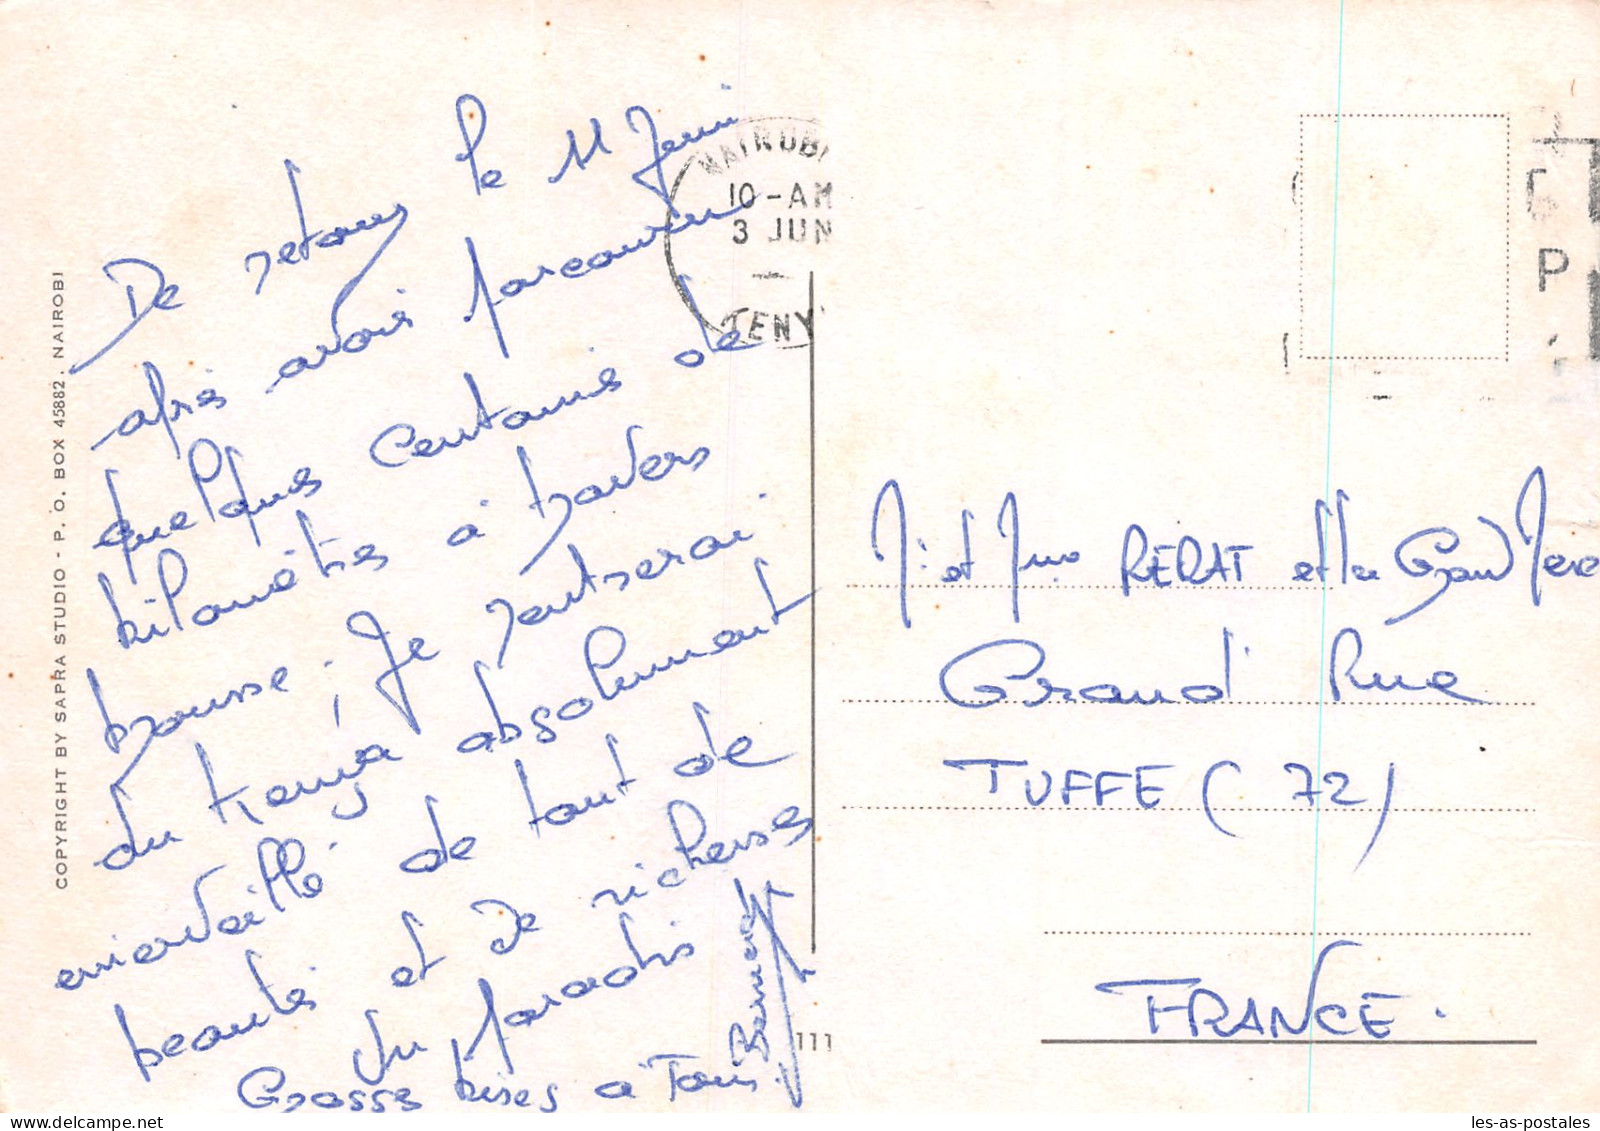 De retour le 11 Juin
après avoir parcouru
quelques centaines de
kilomètres à travers
brousse. Je rentrerai
du Kenya absolument
émerveillé de tant de
beautés et de richesses
du paradis
Grosses bises à Tous.
Bernard
NAIROBI
10-AM
3 JUN
KENY
COPYRIGHT BY SAPRA STUDIO - P. O. BOX 45882, NAIROBI
111
P
M. et Mme RERAT et la Grand Mere
Grand' Rue
TUFFE (72)
FRANCE.
les-as-postales
delcampe.net